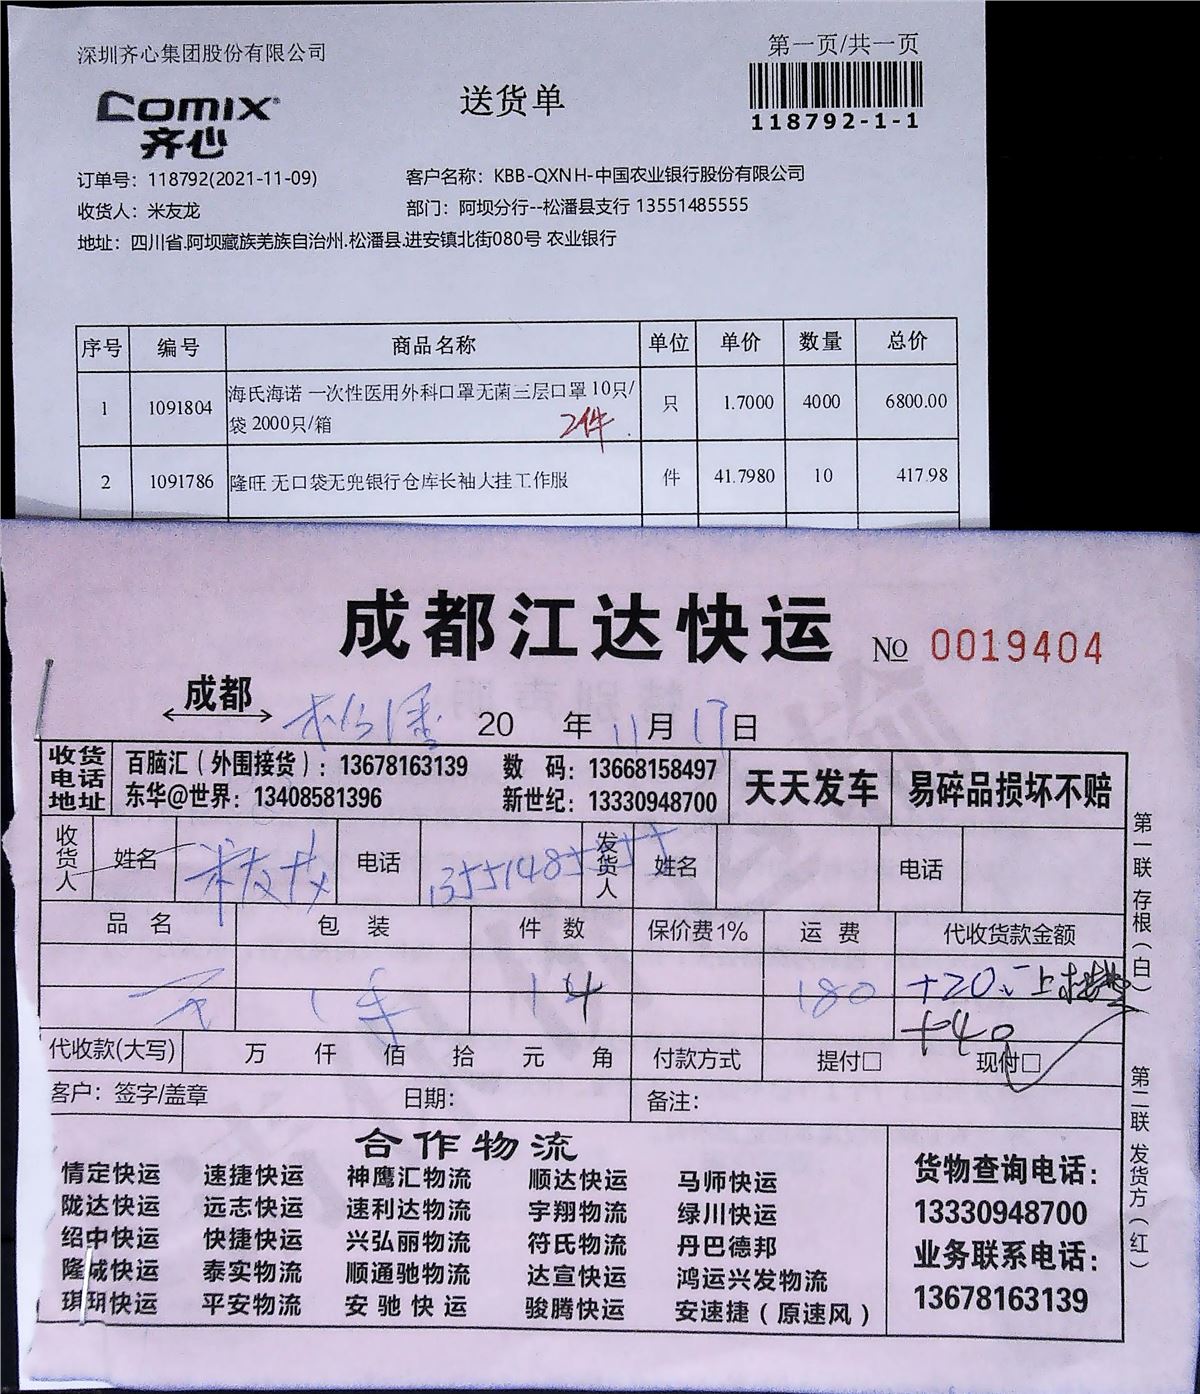 深圳齐心集团股份有限公司
第一页/共一页
COMIX
齐心
送货单
118792-1-1
订单号：118792(2021-11-09)
客户名称：KBB-QXNH-中国农业银行股份有限公司
收货人：米友龙
部门：阿坝分行--松潘县支行 13551485555
地址：四川省.阿坝藏族羌族自治州.松潘县.进安镇北街080号 农业银行
序号 编号 商品名称 单位 单价 数量 总价
1 1091804 海氏海诺 一次性医用外科口罩无菌三层口罩 10只/ 只 1.7000 4000 6800.00
袋 2000只/箱 2件
2 1091786 隆旺 无口袋无兜银行仓库长袖大挂工作服 件 41.7980 10 417.98
成都江达快运
№ 0019404
成都 松潘 20 年 11月17日
收货电话地址 百脑汇（外围接货）：13678163139 数 码：13668158497 天天发车 易碎品损坏不赔
东华@世界：13408581396 新世纪：13330948700
收货人 姓名 米友龙 电话 13551485555 发货人 姓名 电话
品名 包装 件数 保价费1% 运费 代收货款金额
14 180 +20
+40
代收款(大写) 万 仟 佰 拾 元 角 付款方式 提付□ 现付□
客户：签字/盖章 日期： 备注：
合作物流
情定快运 速捷快运 神鹰汇物流 顺达快运 马师快运
陇达快运 远志快运 速利达物流 宇翔物流 绿川快运
绍中快运 快捷快运 兴弘丽物流 符氏物流 丹巴德邦
隆城快运 泰实物流 顺通驰物流 达宣快运 鸿运兴发物流
琪玥快运 平安物流 安驰快运 骏腾快运 安速捷（原速风）
货物查询电话：
13330948700
业务联系电话：
13678163139
第一联 存根（白）
第二联 发货方（红）